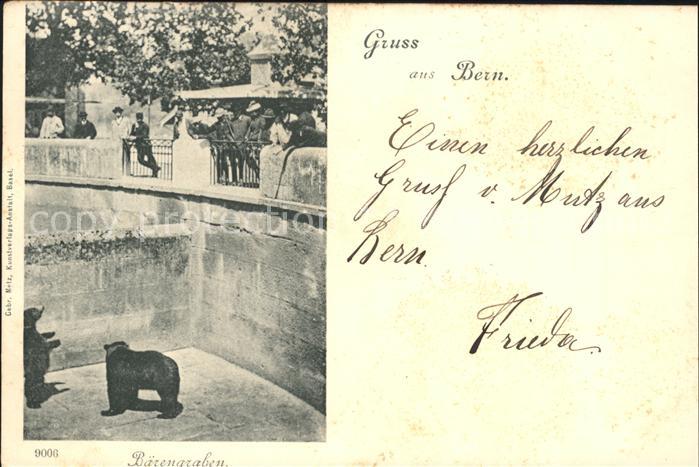 Gruss
aus Bern.
Einen herzlichen
Gruß v. Mutz aus
Bern.
Frieda.
Gebr. Metz, Kunstverlags-Anstalt, Basel.
copy protection
9006
Bärengraben.